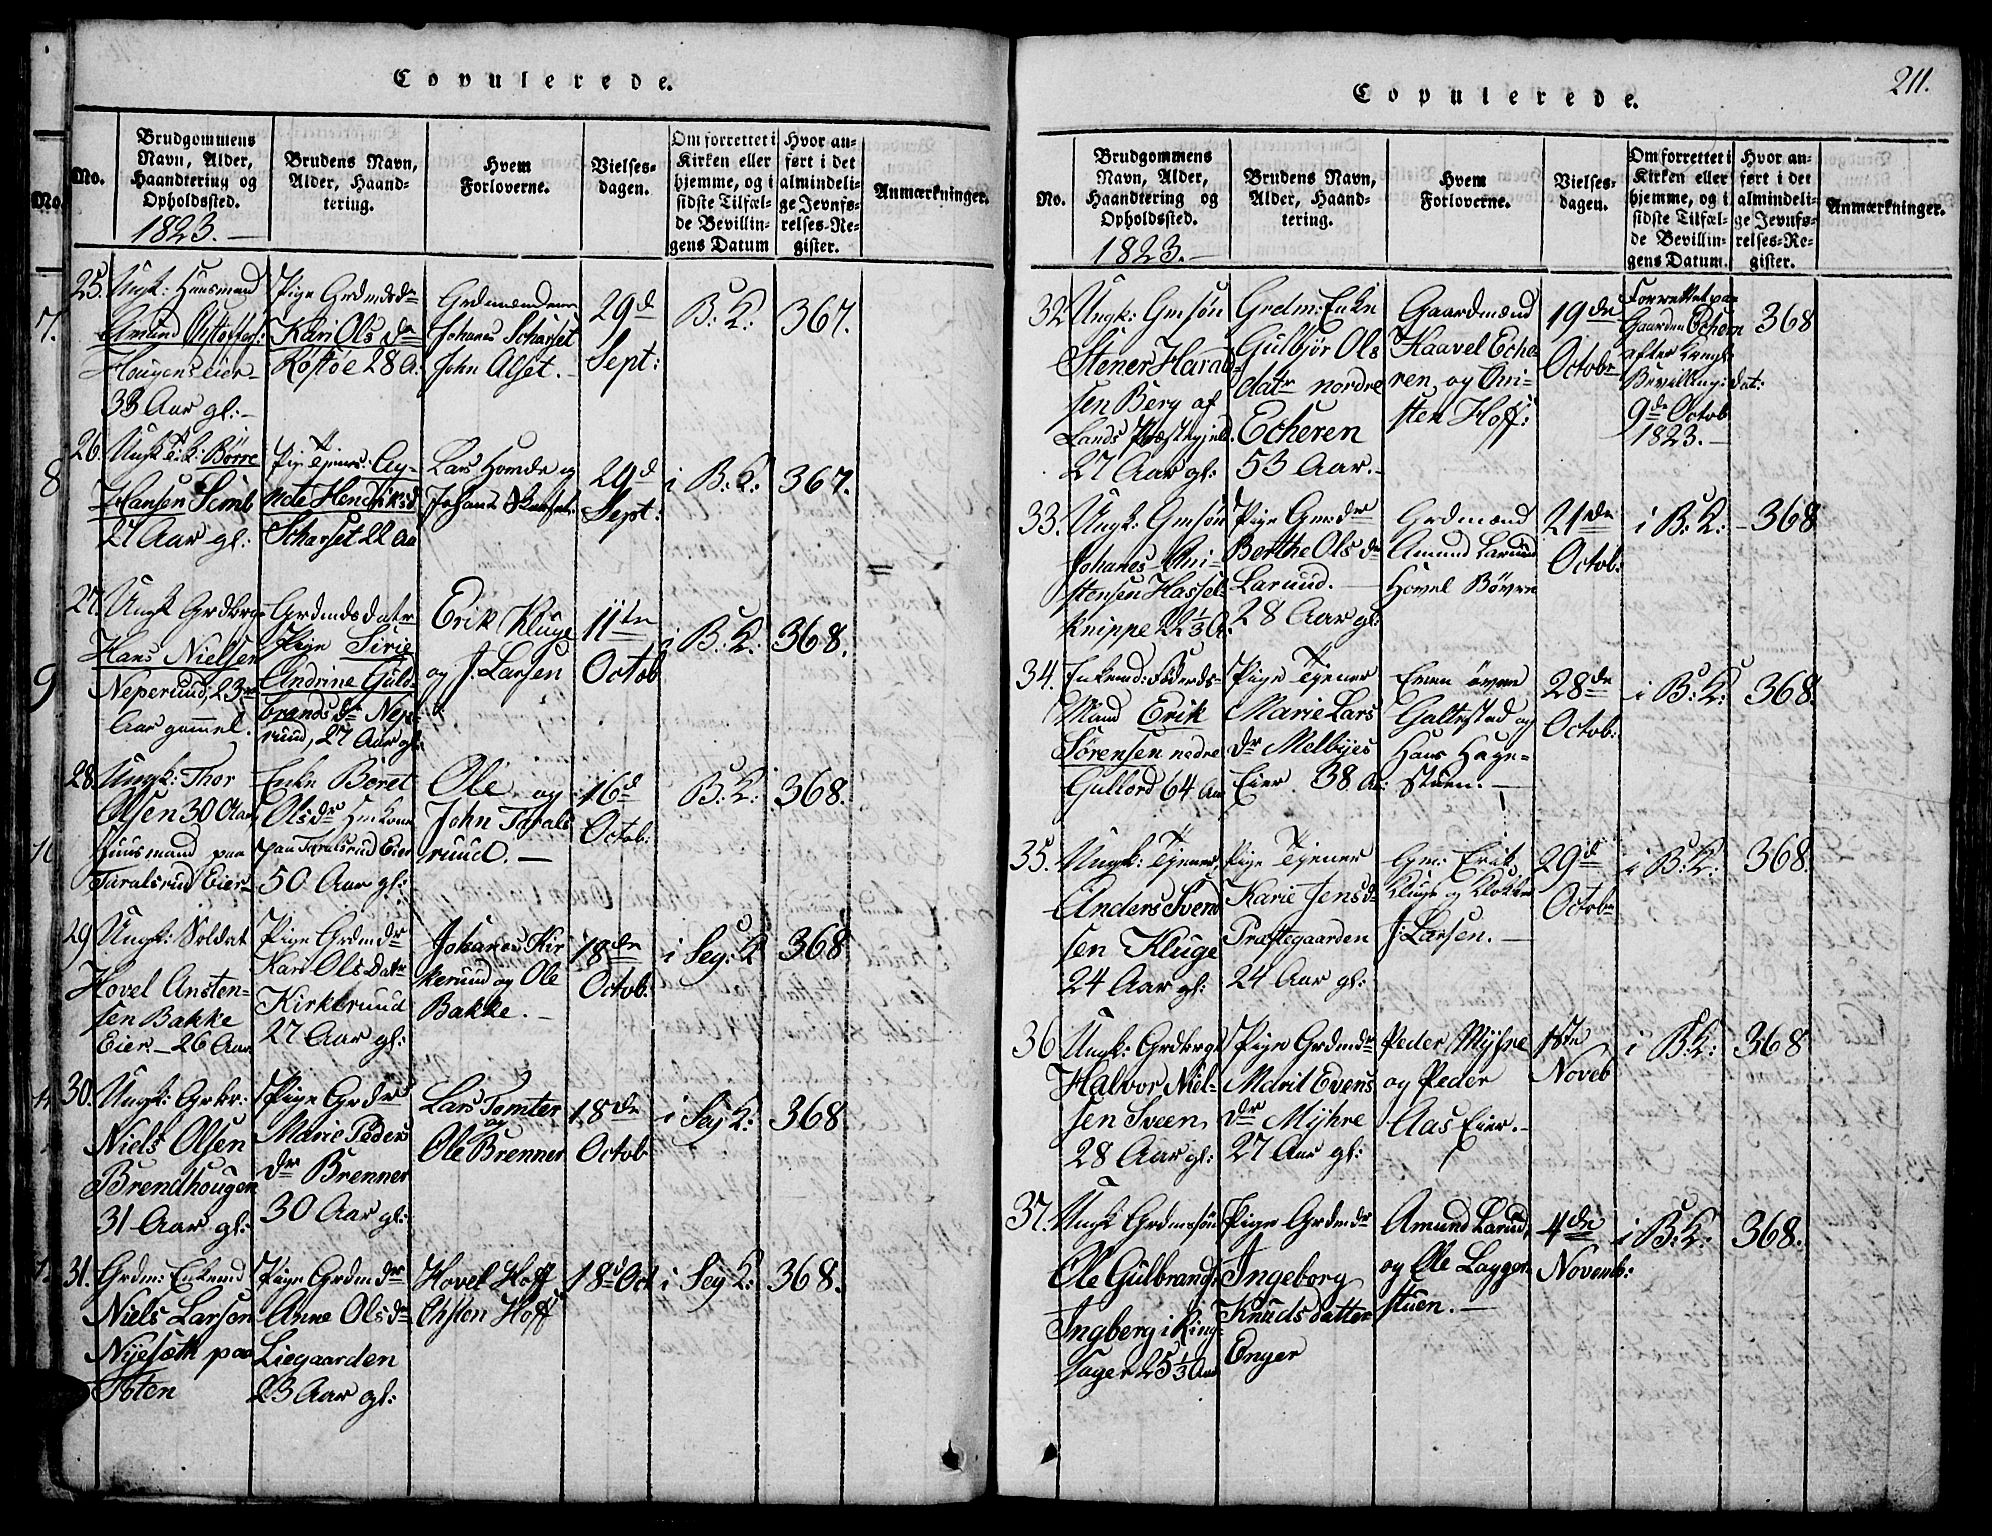 Copulerede.
No.
Brudgommens
Navn, Alder,
Haandtering og
Opholdssted.
1823.
Brudens Navn,
Alder, Haand-
tering.
Hvem
Forloverne.
Vielses-
dagen.
Om forrettet i
Kirken eller
hjemme, og i
sidste Tilfæl-
de Bevillin-
gens Datum
Hvor an-
ført i det
almindeli-
ge Jevnfø-
relses-Re-
gister.
Anmærkninger.
25. Ungk: Huusmand
Amund
Hougens eier
33 Aar gl:
Pige Grdmdsdr
Kari Olsdr
Røstøe 28 A.
Grdmændene
Johanes Scharset
John Alset.
29d
Sept:
B: K:
367.
26. Ungk: Børre
Hansen Simb
27 Aar gl:
Pige Tjener: Ag-
nete Henriksd
Scharset 22 Aa
Lars Homde og
Johanes
29d
Sept:
i B: K:
367.
27. Ungk Grdbr
Hans Nielsen
Neperud, 23
Aar gammel.
Grdmdsdatr
Pige Sirie
Andrine Guld-
brandsdr Nep-
rud, 27 Aar gl:
Erik Kluge
og J. Larsen
11te
Octob
i B: K:
368.
28. Ungk: Thor
Olsen 30 Aar
Huusmand paa
Taralsrud Eier
Enke Beret
Olsdr
paa Taralsrud Eier
50 Aar gl:
Ole og
John Tarals
ruud.
16d
Octob:
B: K:
368.
29. Ungk: Soldat
Hovel Ansten-
sen Bakke
Eier 26 Aar
Pige Grdmdr
Kari Olsdatr
Kirkerud
27 Aar gl:
Johanes Kir
kerud og Ole
Bakke.
18de
Octob:
i Seg: K
368
30. Ungk: Grkr:
Niels Olsen
Brendhougen
31 Aar gl:
Pige Grdr
Marie Peders
dr Brenner
30 Aar gl:
Lars Tomter
og
Ole Brenner
18de
Octob
i Seg K:
368.
31. Grdm: Enkemd
Niels Larsen
Nyesæth paa
Toten
Pige Grdmdr
Anne Olsdr
Liegaarden
23 Aar gl:
Hovel Hoff
Christen Hoff
18d Oct
i Seg K:
368.
211.
Copulerede.
No.
Brudgommens
Navn, Alder,
Haandtering og
Opholdssted.
1823.
Brudens Navn,
Alder, Haand-
tering.
Hvem
Forloverne.
Vielses-
dagen.
Om forrettet i
Kirken eller
hjemme, og i
sidste Tilfæl-
de Bevillin-
gens Datum.
Hvor an-
ført i det
almindeli-
ge Jevnfø-
relses-Re-
gister.
Anmærkninger.
32 Ungk: Gmsøn
Stener Harald-
sen Berg af
Lands Præstegjeld.
27 Aar gl:
Grdm: Enke
Gulbjør Ols
datr nordre
Echeren
53 Aar.
Gaardmænd
Kaavel Eche
ren og Chri-
sten Hoff:
19de
Octobr
Forrettet paa
Gaarden Echern
efter Kongl:
Bevilling: dat:
9de Octob
1823.
368
33. Ungk: Gmsøn
Johanes Chri-
stensen Hassel-
knippe 22 1/3 A.
Pige Grdr
Berthe Olsdr
Larud.
28 Aar gl:
Grdmænd
Amund Larud
Hovel Børre
21de
Octob:
i B: K:
368
34. Enkemd: Føderds-
Mand Erik
Sørensen nedre
Gullord 64 Aar
Pige Tjener
Marie Lars
dr Melbyes
Eier. 38 A:
Even øvre
Galterstad og
Hans Hage-
stuen.
28de
Octob:
i B: K:
368.
35. Ungk: Tjener
Anders Svend
sen Kluge
24 Aar gl:
Pige Tjener
Karie Jensdr
Præstegaarden
24 Aar gl:
Gm: Erik
Kluge og Klokker
J: Larsen.
29d
Octobr
i B: K:
368.
36 Ungk: Grdbrgr
Halvor Niel-
sen Sveen,
28 Aar gl:
Pige Grdmdr
Marit Evens
dr Myhre
27 Aar gl:
Peder Myhre
og Peder
Aas Eier.
1ste
Noveb
i B: K:
368
37. Ungk Grdmssøn
Ole Gulbrands
Ingberg i Ring-
sager 25 1/3 Aar
Pige Grdmdr
Ingeborg
Knudsdatter
Enger
Amund Larud,
og Ole Lagger
stuen.
4de
Novemb:
i B: K:
368.